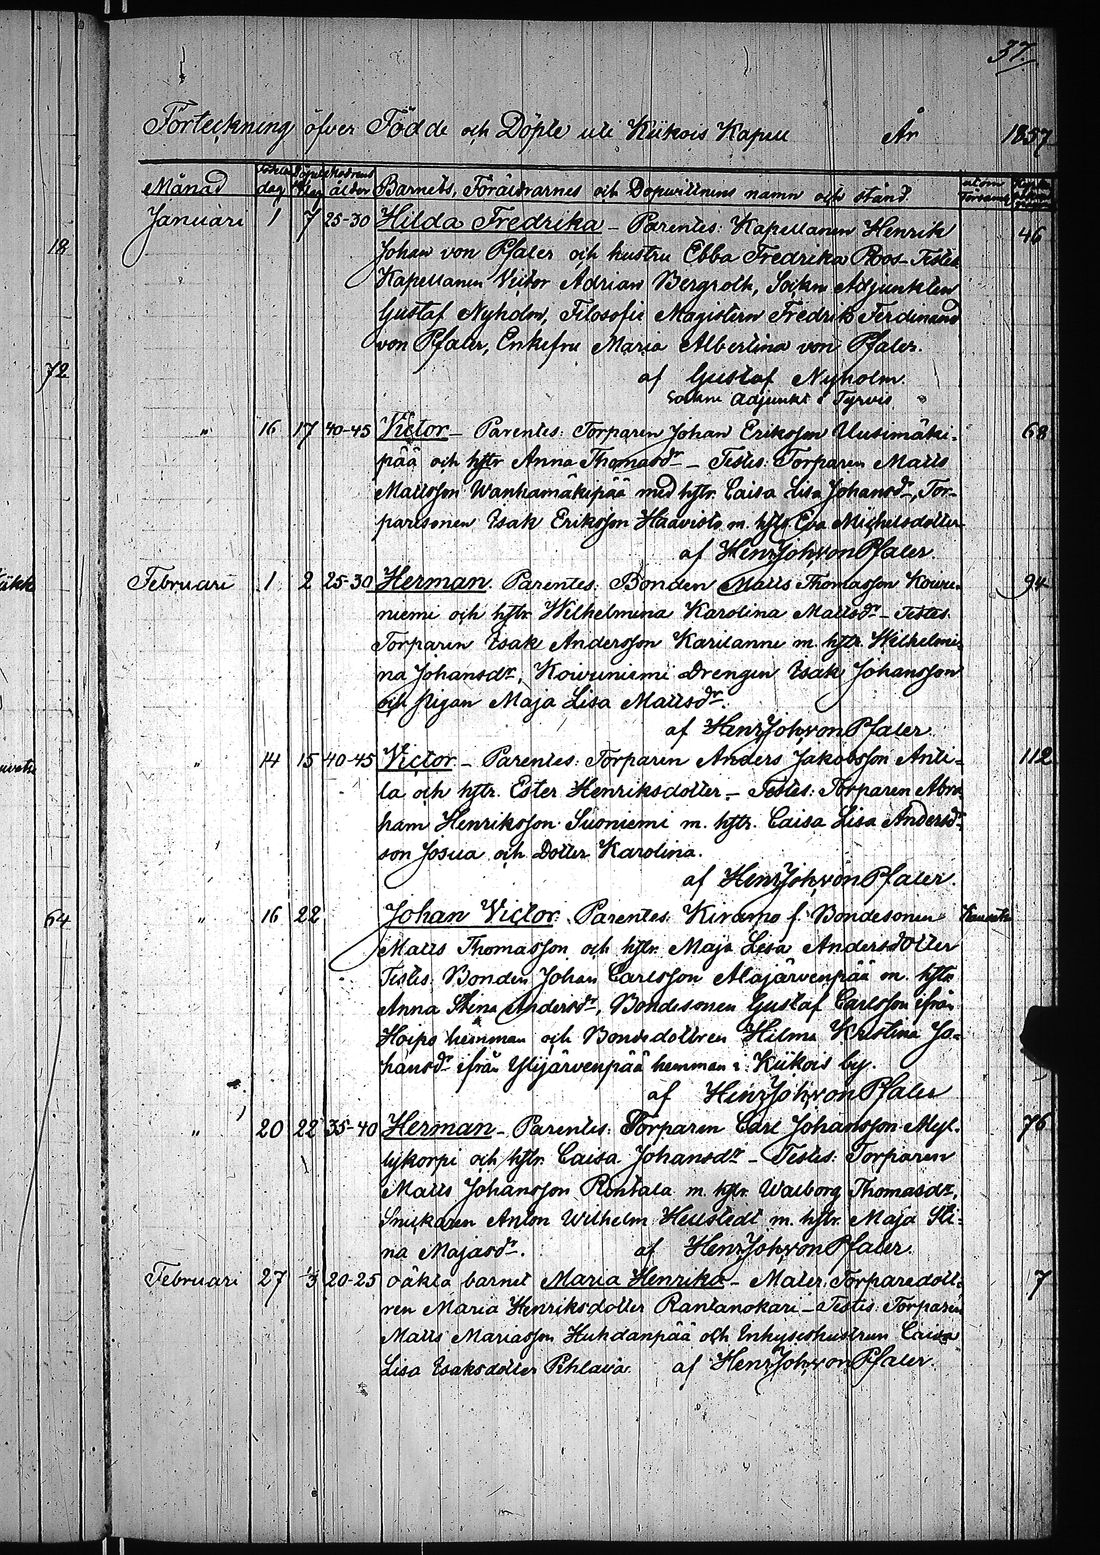 37.
Förteckning öfver Födde och Döpte uti Kiikois Kapell År 1857
Månad Födelse dag Döpelse dag Modrens ålder Barnets, Föräldrarnes och Dopvittnens namn och stånd. utom
Januari 1 7 25-30 Hilda Fredrika - Parentes: Kapellanen Henrik 46
18 Johan von Pfaler och hustru Ebba Fredrika Roos - Testes
Kapellanen Victor Adrian Bergroth, Sockne Adjunkten
Gustaf Nyholm, Filosofie Magistern Fredrik Ferdinand
von Pfaler, Enkefru Maria Albertina von Pfaler.
72 af Gustaf Nyholm.
Sockne Adjunkt i Tyrvis
" 16 17 40-45 Victor - Parentes: Torparen Johan Eriksson Uusimäki- 68
pää och hstr Anna Thomasdr - Testes: Torparen Matts
Mattsson Wanhamäkipää med hstr. Caisa Lisa Johansdr, Tor-
paresonen Isak Eriksson Haavisto m. hstr. Eva Michelsdotter
af Henr Joh von Pfaler
Februari 1 2 25-30 Herman. Parentes: Bonden Matts Thomasson Koivu- 94
niemi och hstr. Wilhelmina Karolina Mattsdr - Testes.
Torparen Isak Andersson Karilanne m. hstr. Wilhelmi-
na Johansdr, Koivuniemi Drengen Isak Johansson
och Pigan Maja Lisa Mattsdr.
af Henr Joh von Pfaler.
" 14 15 40-45 Victor - Parentes: Torparen Anders Jakobsson Anti- 112
la och hstr. Ester Henriksdotter - Testes: Torparen Abra
ham Henriksson Suoniemi m. hstr. Caisa Lisa Andersdr.
son Josua och Dotter Karolina.
af Henr Joh von Pfaler.
64 " 16 22 Johan Victor. Parentes: Kiramo f. Bondesonen
Matts Thomasson och hstr. Maja Lisa Andersdotter
Testis: Bonden Johan Carlsson Alajärvenpää m. hstr.
Anna Stina Andersdr, Bondesonen Gustaf Carlsson ifrån
Hoipo hemman och Bondedottren Hilma Kristina Jo-
hansdr ifrån Ylijärvenpää hemman i Kiikois by.
af Henr Joh von Pfaler
" 20 22 35-40 Herman - Parentes: Torparen Carl Johansson Myl- 76
lykorpi och hstr. Caisa Johansdr - Testis: Torparen
Matts Johansson Rintala m. hstr. Walborg Thomasdr,
Snickaren Anton Wilhelm Hellstedt m. hstr. Maja Sti-
na Majasdr. af Henr Joh von Pfaler.
Februari 27 1/3 20-25 oäkta barnet Maria Henrika - Mater: Torparedott- 7
ren Maria Henriksdotter Rantanokari - Testis: Torparen
Matts Mariasson Huhdanpää och Inhyseshustrun Caisa
Lisa Isaksdotter Pihlava. af Henr Joh von Pfaler.